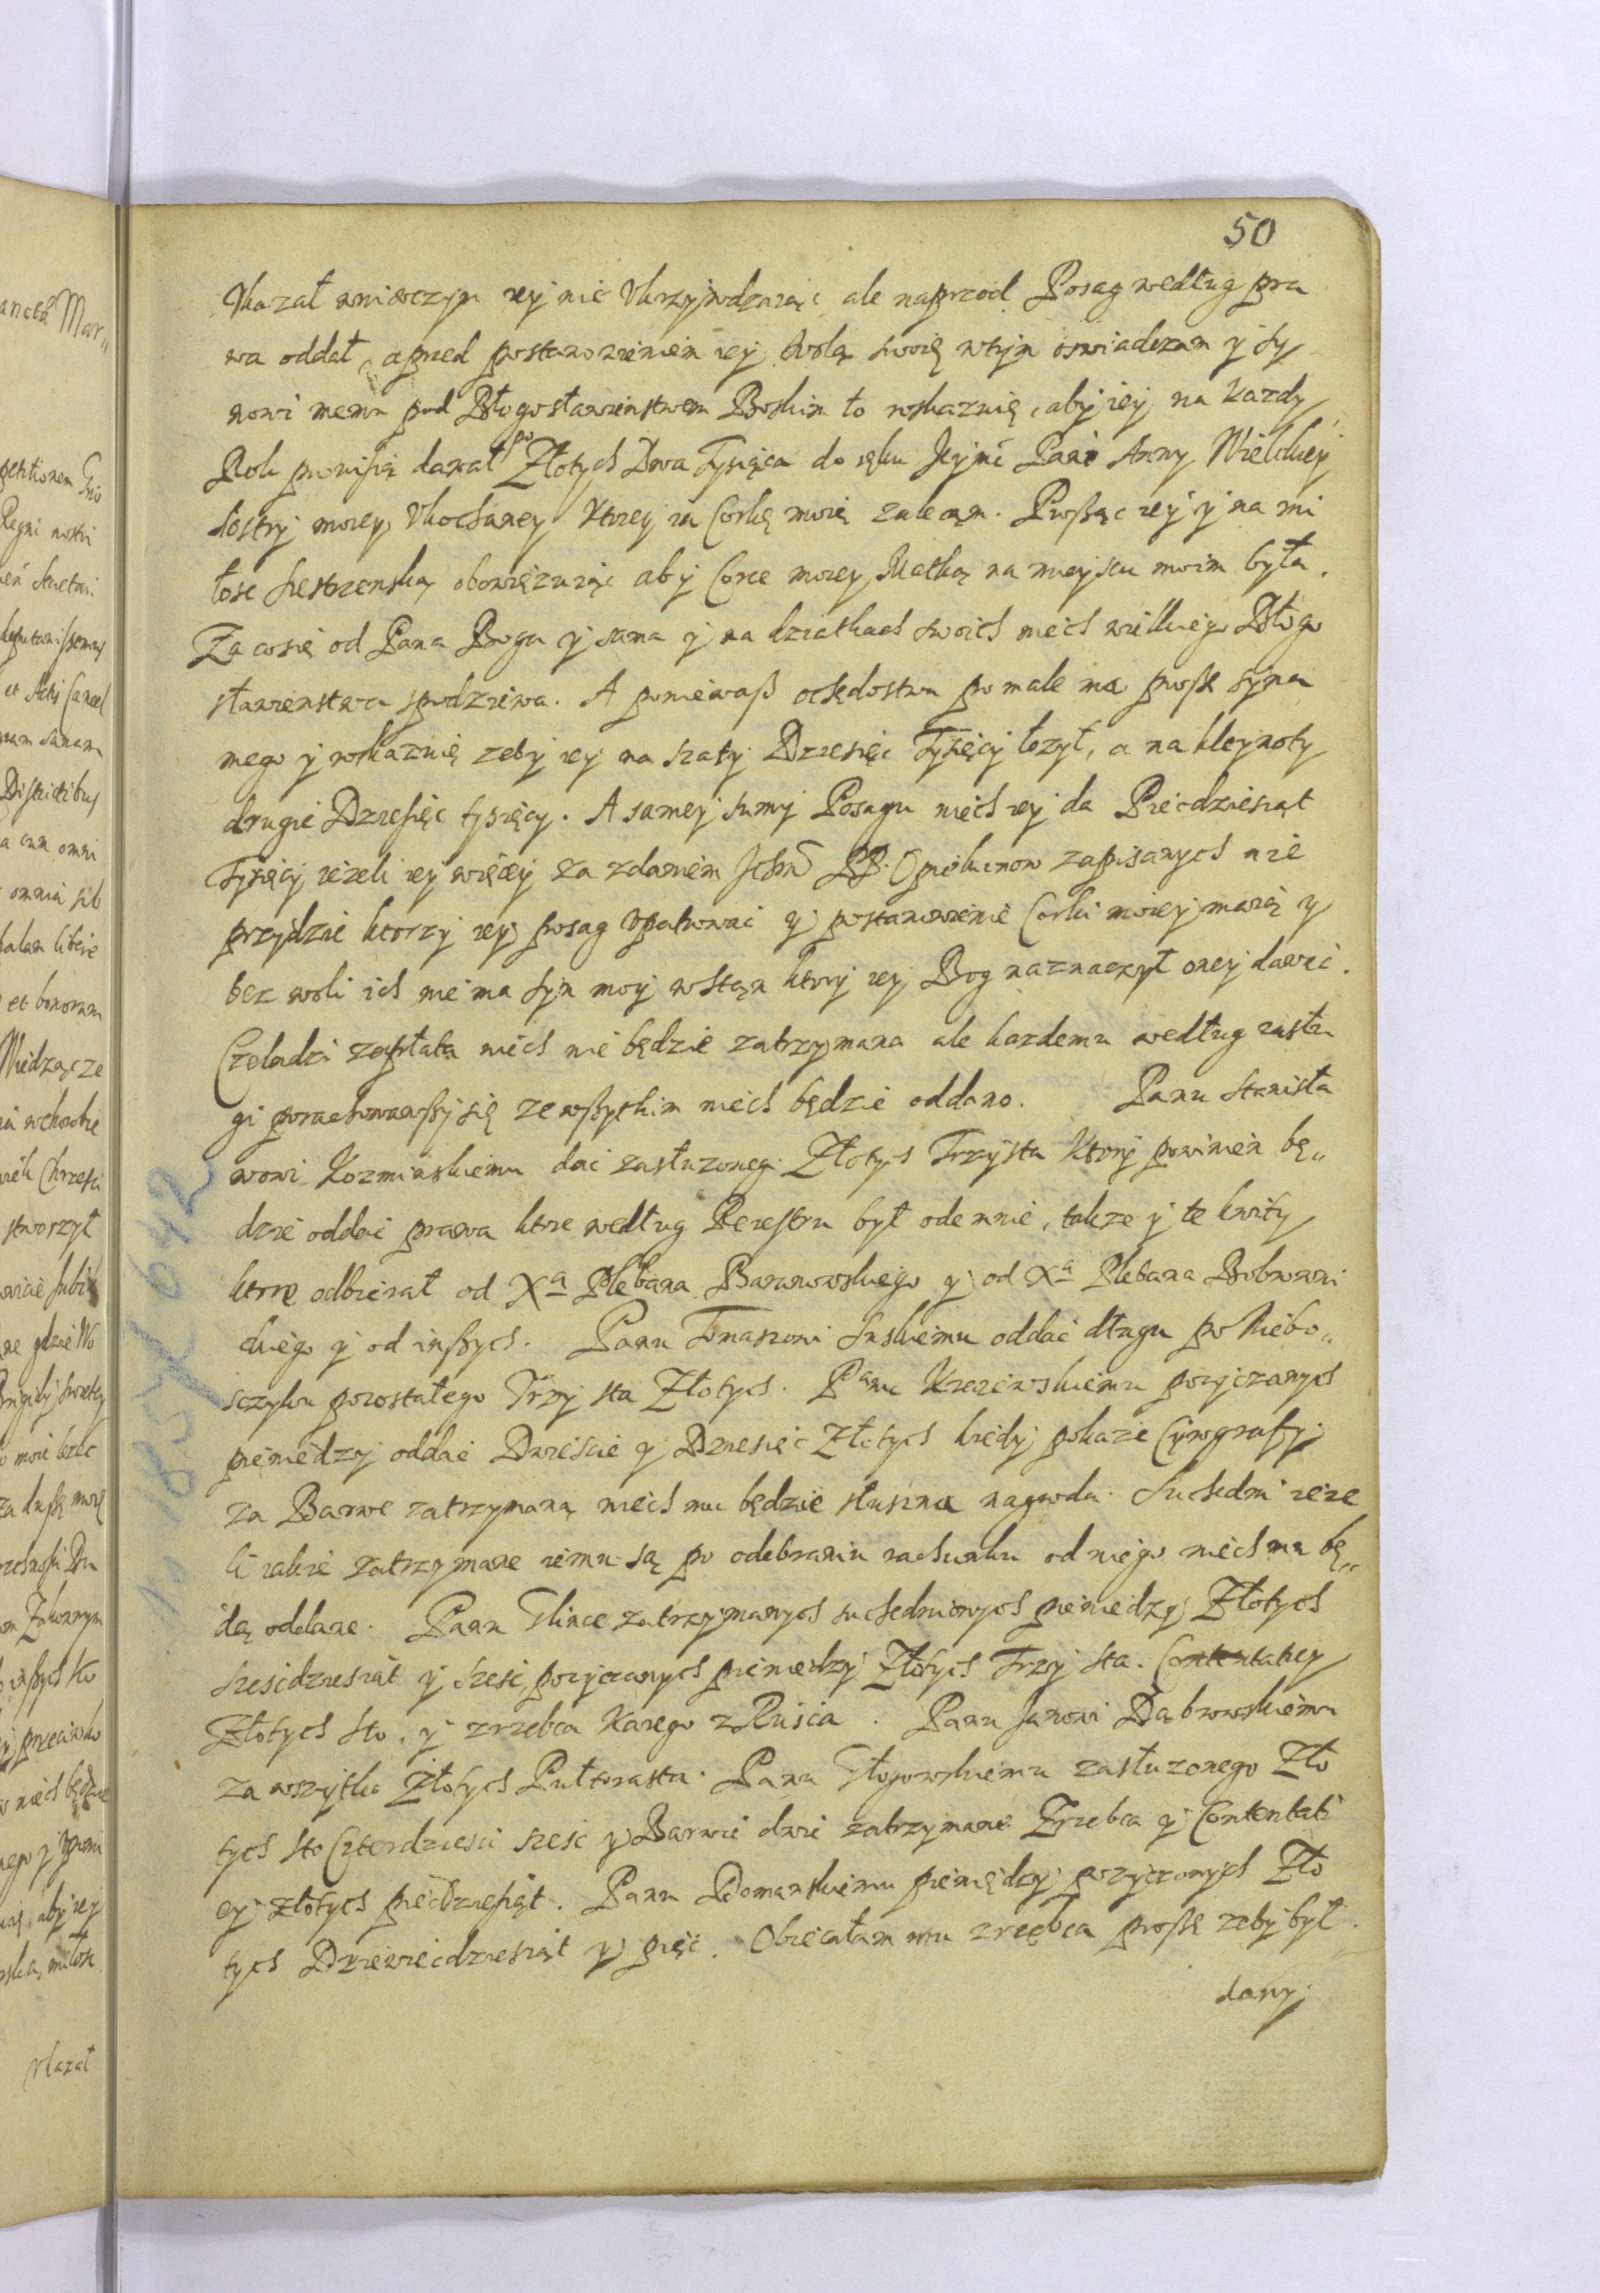 50
Vkazał wniwczym iey nie Vkrzywdzaiąc ale naprzod Posag według pra
wa oddał, a przed postanowieniem iey Wolą swoię wtym oswiadczam y Sy
nowi memu pod Błogosławienstwem Boskim to roskazuię, aby iey na kazdy
Rok prowisią dawał po Złotych Dwa Tysiąca do ręku Jeymć Pani Anny Wielckiey
siostry moiey Vkochaney ktorey za Corkę moię zalecam. Proszę iey y na mi
łosc siestrzenską obowięzuiąc aby Corce moiey Matką na mieyscu moim była.
Za co się od Pana Boga y sama y na dziatkach swoich niech wielkiego Błogo
sławienstwa spodziewa. A poniewasz ochędostwa po male ma proszę Syna
mego y roskazuię zeby iey na szaty Dziesięc Tysięcy łozył, a na kleynoty
drugie Dziesięc tysięcy. A samey sumy Posagu niech iey da Piecdziesiąt
Tysięcy iezeli iey więcey za zdaniem Ichm PP. Opiekunow zapisanych nie
przydzie ktorzy iey posag Vpatrowac y postanowienie Corki moiey maią y
bez woli ich nie ma Syn moy w stan ktory iey Bog naznaczył oney dawac.
Czeladzi zapłata niech nie będzie zatrzymana ale kazdemu według zasłu
gi porachowawszy się ze wszytkim niech będzie oddano. Panu Stanisła
wowi Kozminskiemu dac zasłuzonego Złotych Trzysta ktory powinien bę„
dzie oddac prawa ktore według Reiestru był odemnie, takze y te kwity
ktore odbierał od Xa Plebana Baranowskiego y od Xa Plebana Bobrowni
ckiego y od inszych. Panu Tomaszowi Suskiemu oddac długu po Niebo„
sczyku pozostałego Trzy sta Złotych. Panu Krzeiewskiemu pozyczanych
pieniedzy oddac Dwiescie y Dziesięc Złotych kiedy pokaze Cyrografy
za Barwe zatrzymaną niech mu będzie słuszna nagroda. Suchedni ieze
li iakie zatrzymane iemu są po odebraniu rachunku od niego niech mu bę„
dą oddane. Panu Glince zatrzymanych suchedniowych pieniedzy Złotych
szescdziesiąt y szesc, pozyczanych pieniedzy Złotych Trzy sta. Contentacey
Złotych sto. y zrzebca Karego z Ruscia. Panu Janowi Dąbrowskiemu
za wszytko Złotych Pułtorasta. Panu Głogowskiemu zasłuzonego Zło
tych sto Czterdziesci szesc y Barwie dwie zatrzymane Zrzebca y Contentati
ey złotych piecdziesiąt. Panu Domanskiemu pieniędzy pozyczonych Zło
tych Dziewiecdziesiąt y pięc. Obiecałam mu zrzebca proszę zeby był
dany